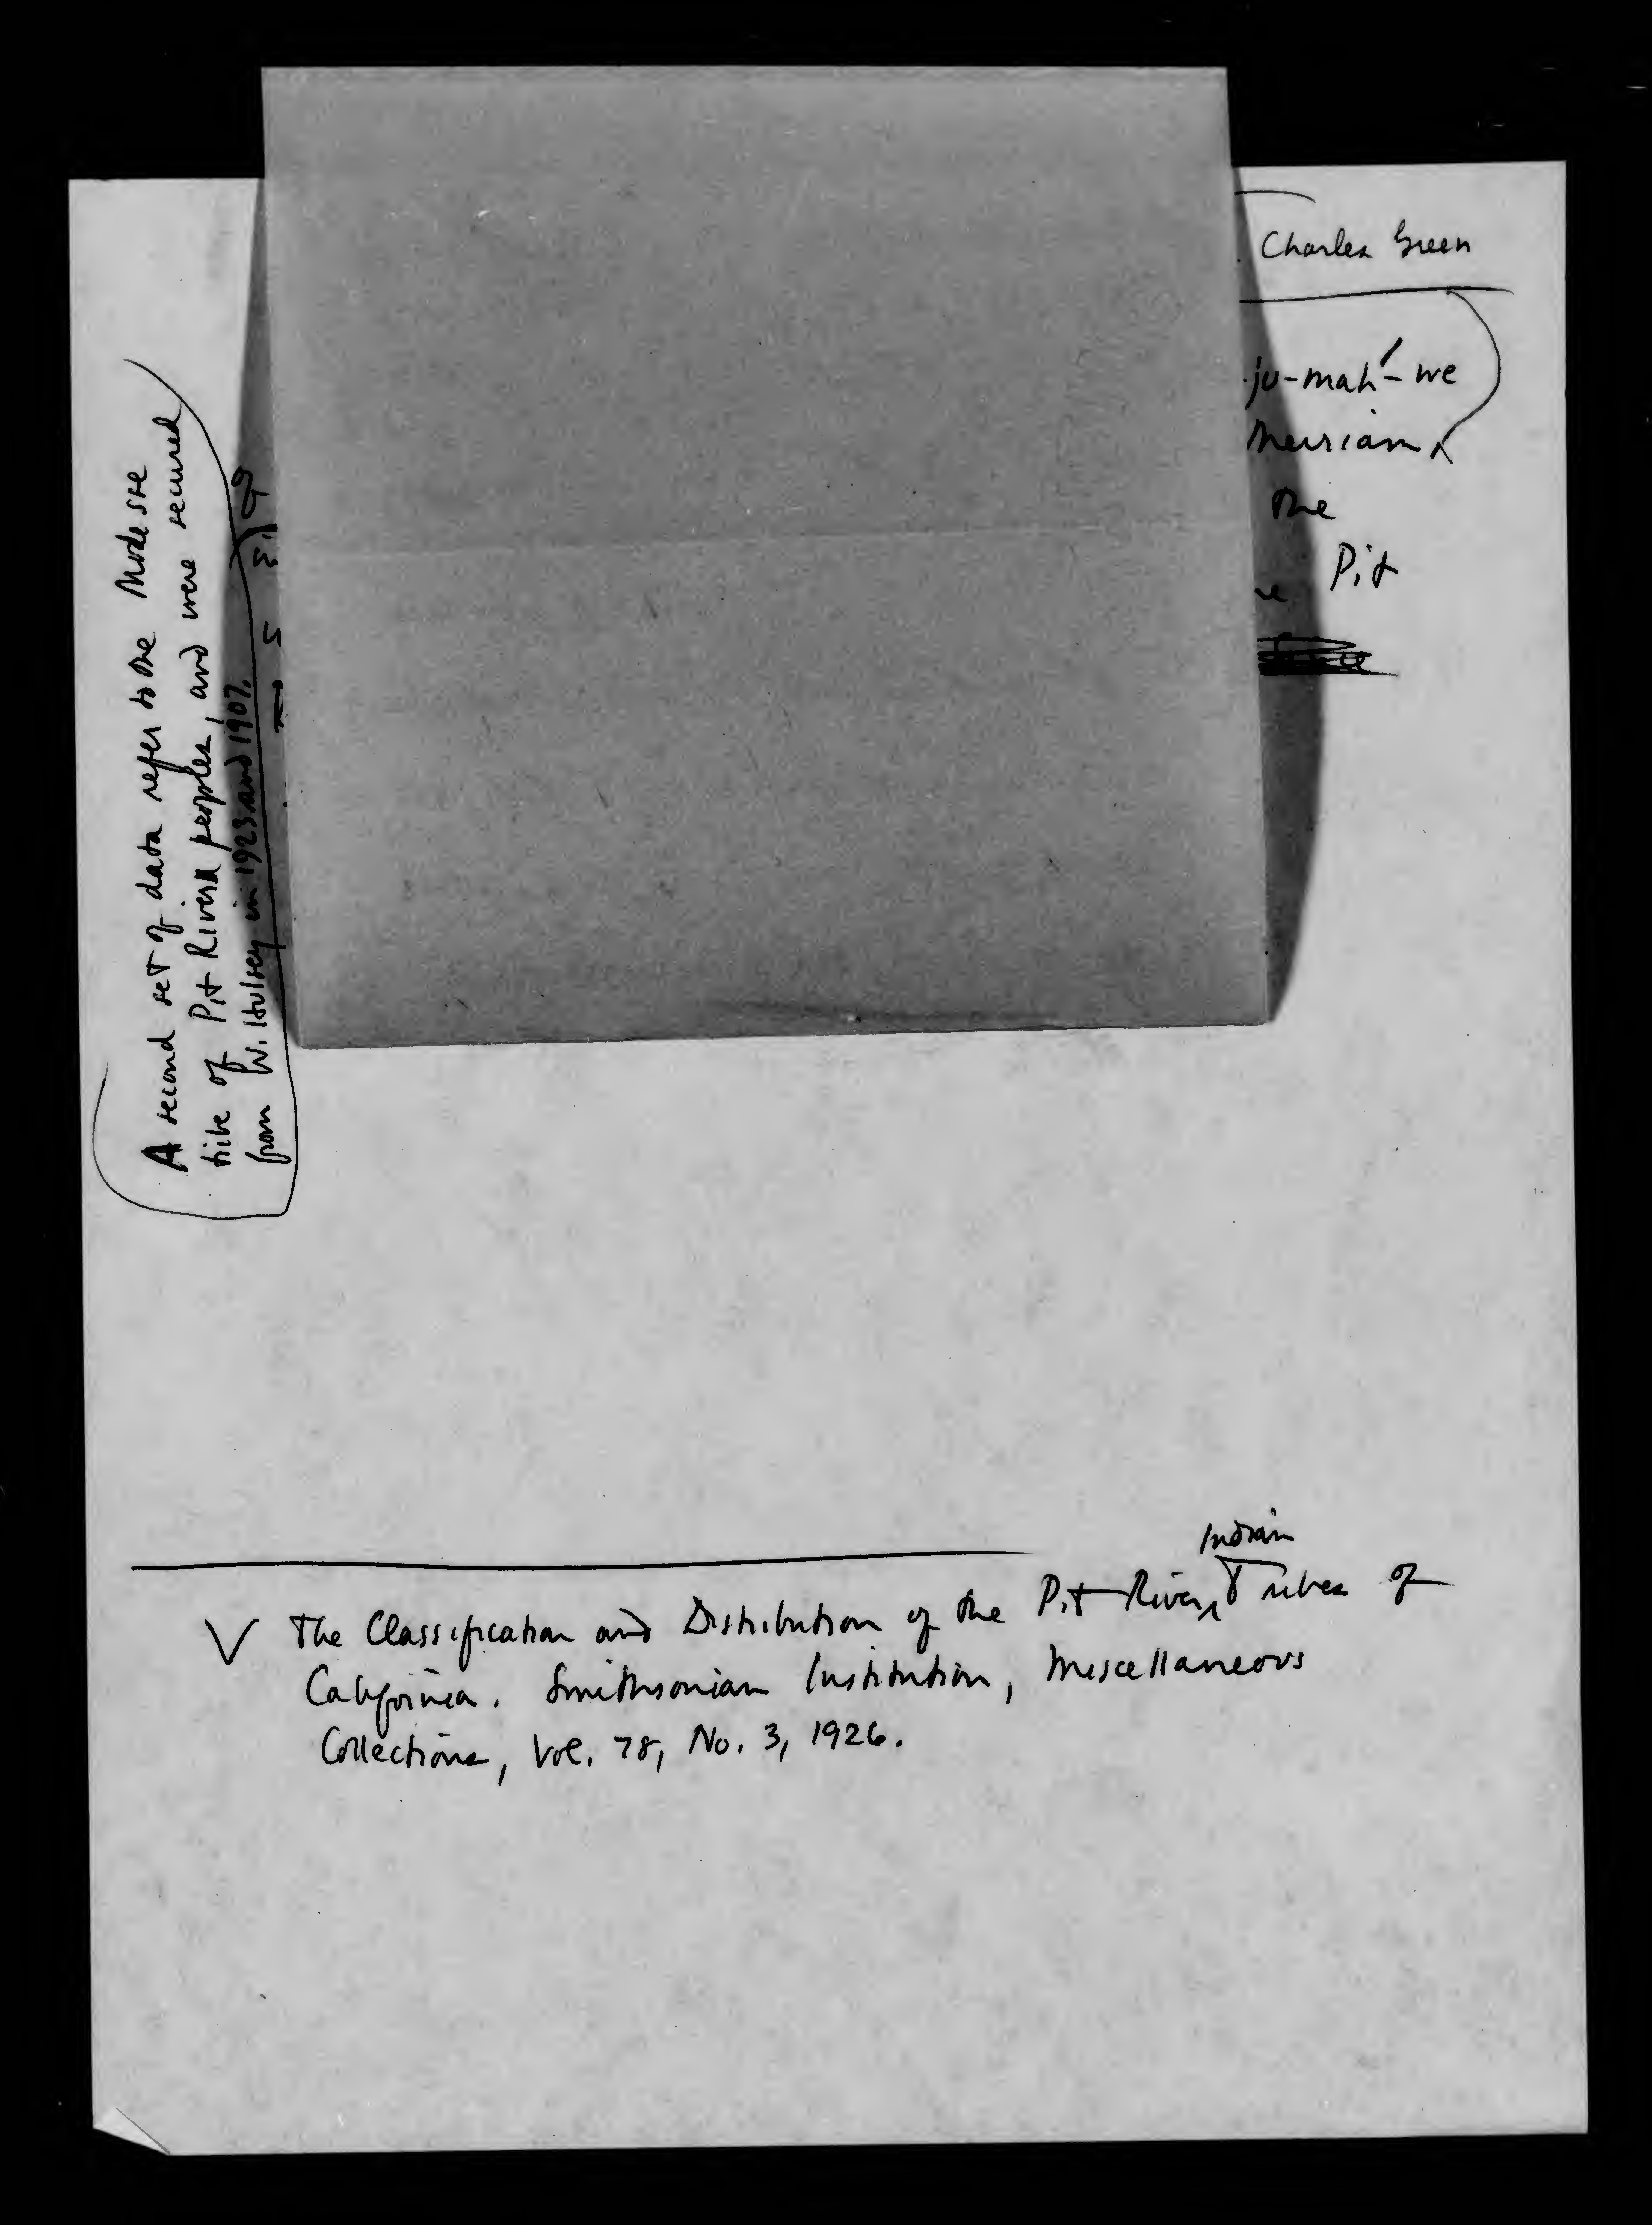 Charles Green
ju-mah'-we
Merriam
the
Pit
A second set of data refer to the Modesse
tribe of Pit River peoples, and were secured
from W. Hulsey in 1923 and 1907.
Indian
√ The Classification and Distribution of the Pit River Tribes of
California. Smithsonian Institution, Miscellaneous
Collections, Vol. 78, No. 3, 1926.